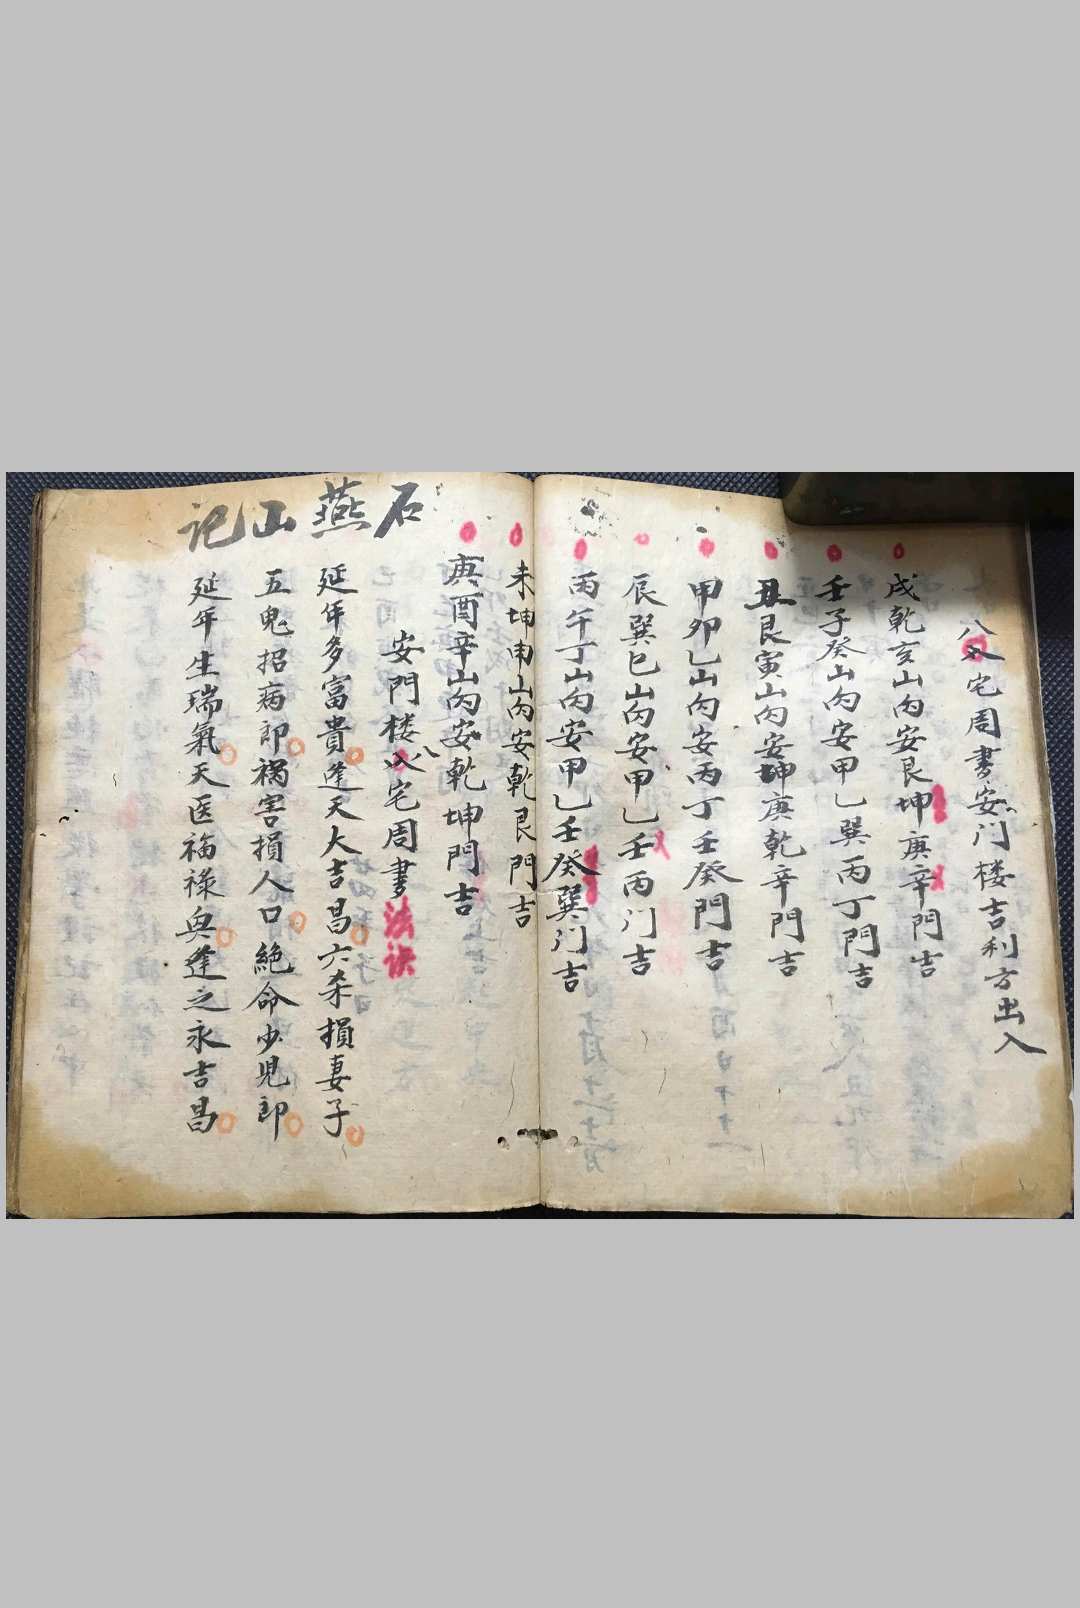 八宅周書安门楼吉利方出入
戌乾亥山内安艮坤庚辛門吉
壬子癸山内安甲乙巽丙丁門吉
丑艮寅山内安坤庚乾辛門吉
甲卯乙山内安丙丁壬癸門吉
辰巽巳山内安甲乙壬丙门吉
丙午丁山内安甲乙壬癸巽门吉
未坤申山内安乾艮門吉
庚酉辛山内安乾坤門吉
安門楼八宅周書法訣
石燕山记
延年多富貴逢天大吉昌六杀損妻子
五鬼招病郎禍害損人口絶命少児郎
延年生瑞氣天医福禄與逢之永吉昌